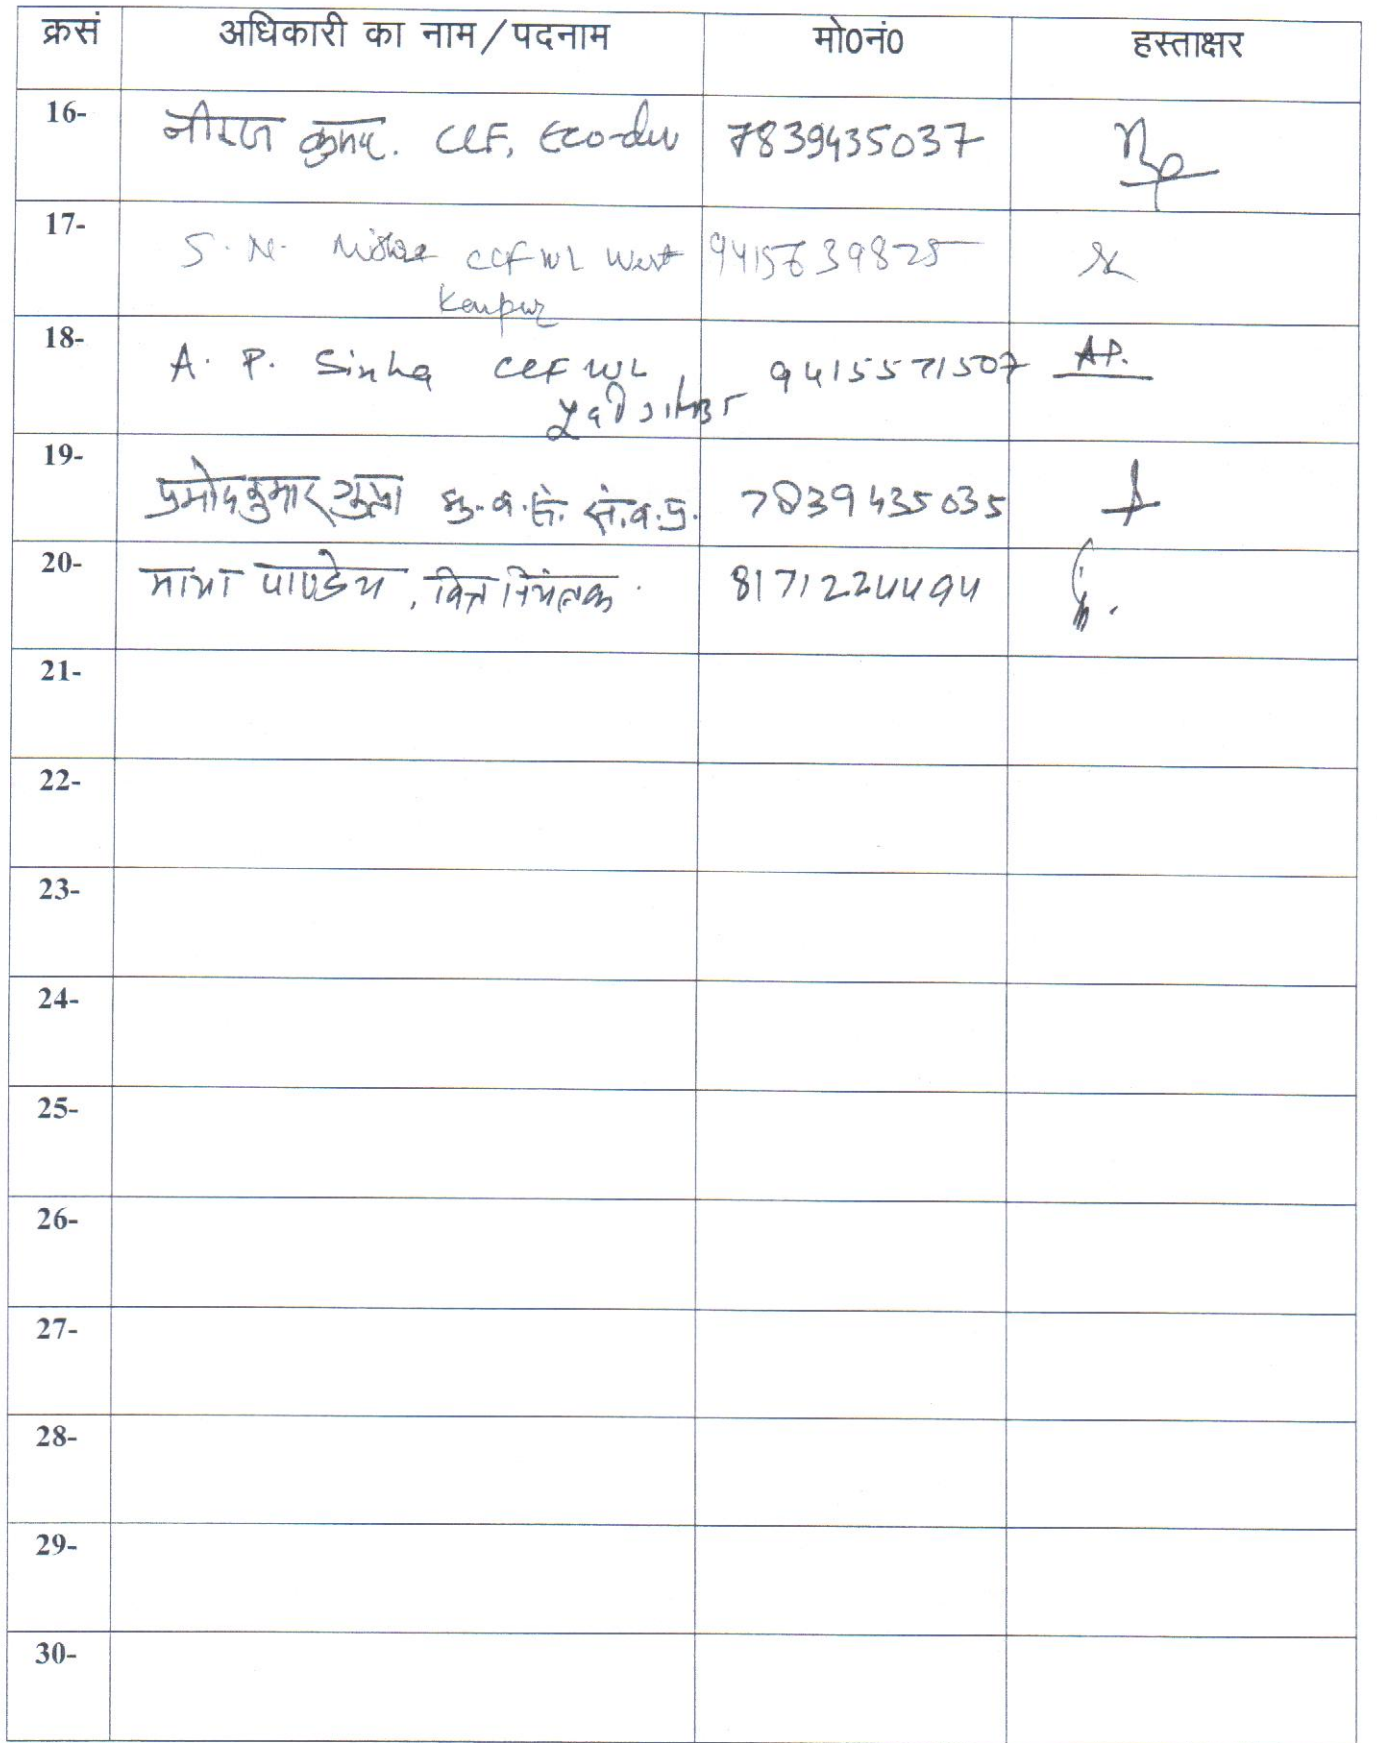 क्रसं अधिकारी का नाम/पदनाम मो0नं0 हस्ताक्षर
16- नीरज कुमार. CCF, Eco-dev 7839435037
17- S. N. Mishra CCF WL West 9415639825
Kanpur
18- A. P. Sinha CCF WL 9415571507 AP.
19- प्रमोद कुमार गुप्ता मु.व.सं. 7839435035
20- पाण्डेय, वित्त नियंत्रक. 8171224494
21-
22-
23-
24-
25-
26-
27-
28-
29-
30-